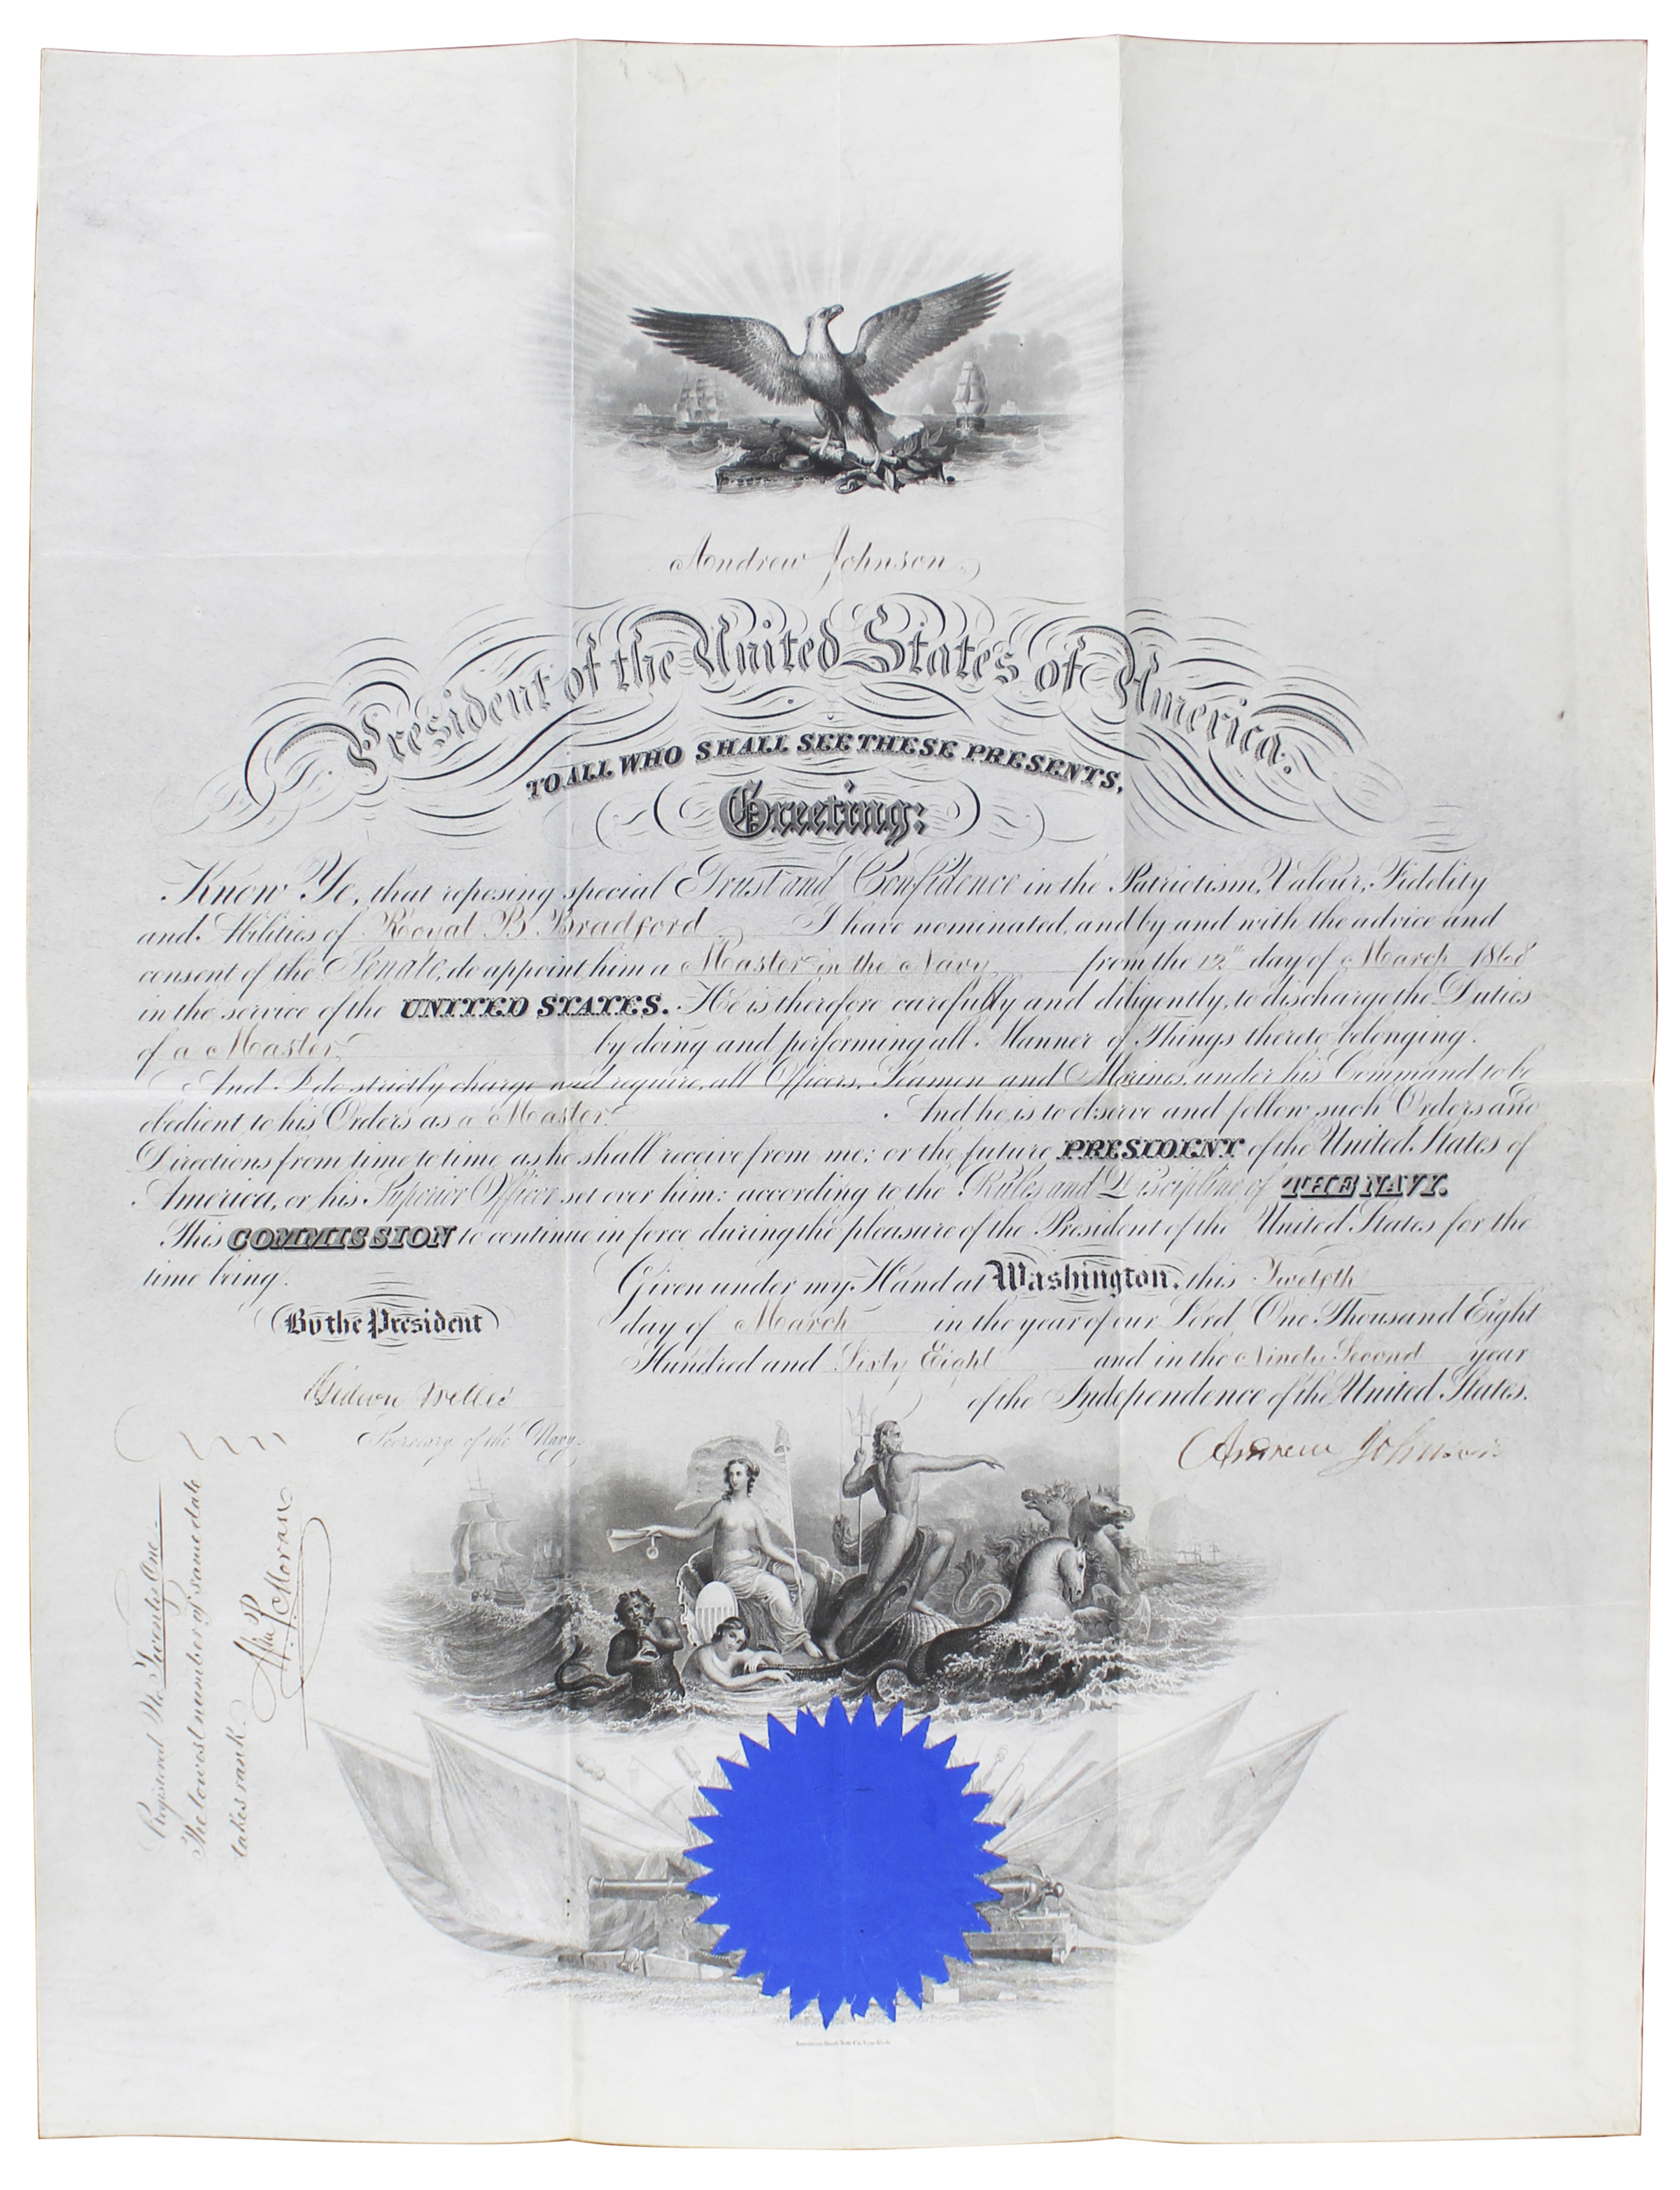 Andrew Johnson
President of the United States of America.
TO ALL WHO SHALL SEE THESE PRESENTS,
Greeting:
Know Ye, that reposing special Trust and Confidence in the Patriotism, Valour, Fidelity
and Abilities of Royal B Bradford I have nominated, and by and with the advice and
consent of the Senate, do appoint him a Master in the Navy from the 12th day of March 1868
in the service of the UNITED STATES. He is therefore carefully and diligently, to discharge the Duties
of a Master by doing and performing all Manner of Things thereto belonging.
And I do strictly charge and require, all Officers, Seamen and Marines, under his Command, to be
obedient to his Orders as a Master. And he is to observe and follow such Orders and
Directions from time to time as he shall receive from me; or the future PRESIDENT of the United States of
America, or his Superior Officer set over him: according to the Rules and Discipline of THE NAVY.
This COMMISSION to continue in force during the pleasure of the President of the United States for the
time being.
Given under my Hand at Washington, this Twelfth
By the President
day of March in the year of our Lord One Thousand Eight
Hundred and Sixty Eight and in the Ninety Second year
Gideon Welles
of the Independence of the United States.
Secretary of the Navy.
Andrew Johnson
Registered No Twenty One
The lowest number of same date
takes rank.
Wm P Moran
American Bank Note Co. New York